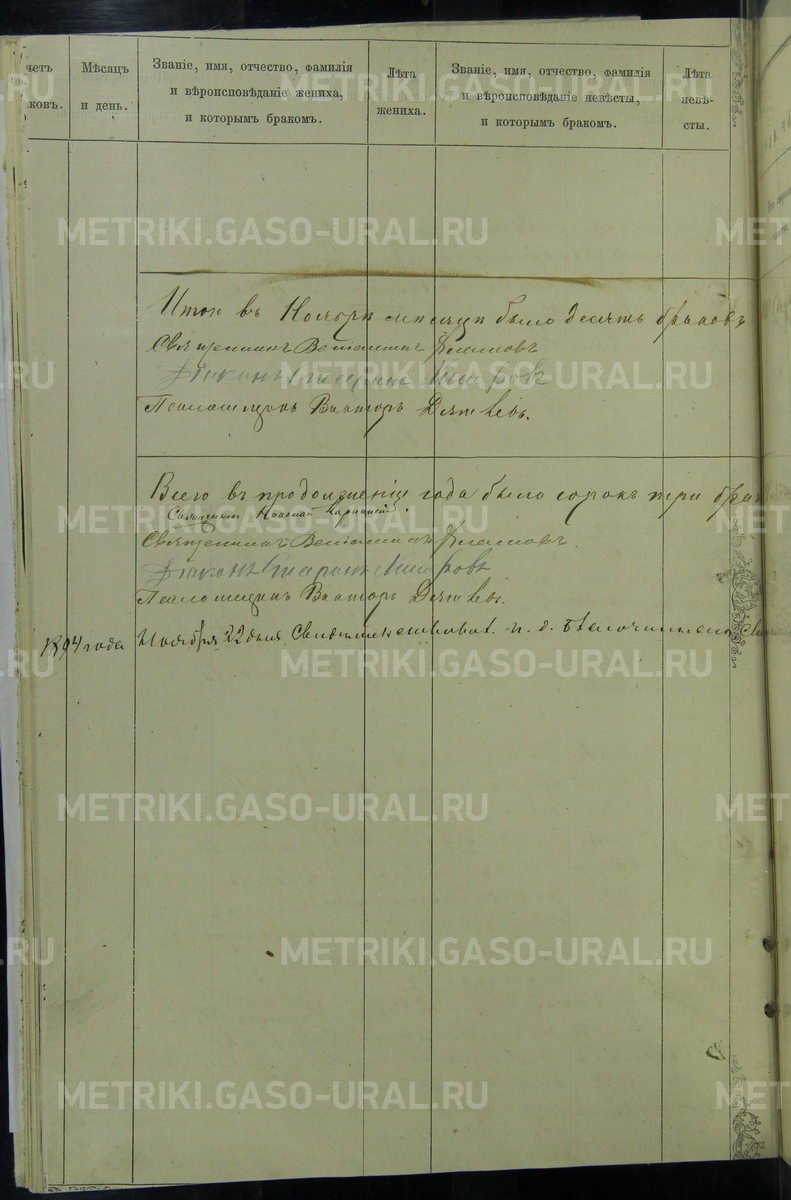 четъ
ковъ.
Мѣсяцъ
и день.
Званіе, имя, отчество, фамилія
и вѣроисповѣданіе жениха,
и которымъ бракомъ.
Лѣта
жениха.
Званіе, имя, отчество, фамилія
и вѣроисповѣданіе невѣсты,
и которымъ бракомъ.
Лѣта
невѣ-
сты.
Итого въ Ноябрѣ мѣсяцѣ было десять браковъ
Священникъ Веніаминъ
Діаконъ Стефанъ
Псаломщикъ Викторъ
Всего въ продолженіе года было сорокъ три брак
Священникъ Николай
Священникъ Веніаминъ
Діаконъ Стефанъ
Псаломщикъ Викторъ
1894 года Ноября 22 дня Свидѣтельствовал. и. д. благочиннаго Св
METRIKI.GASO-URAL.RU